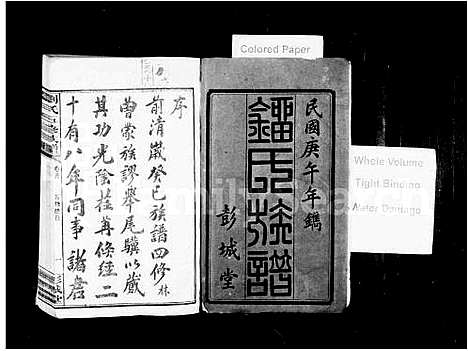 Colored Paper
民國庚午年鐫
鐂氏族譜
彭城堂
Whole Volume
Tight Binding
Water Damage
序
前清歲癸巳族譜四修林
曾蒙族謬舉尾驥以蕆
其功光陰荏苒倏經二
十有八年同事諸君